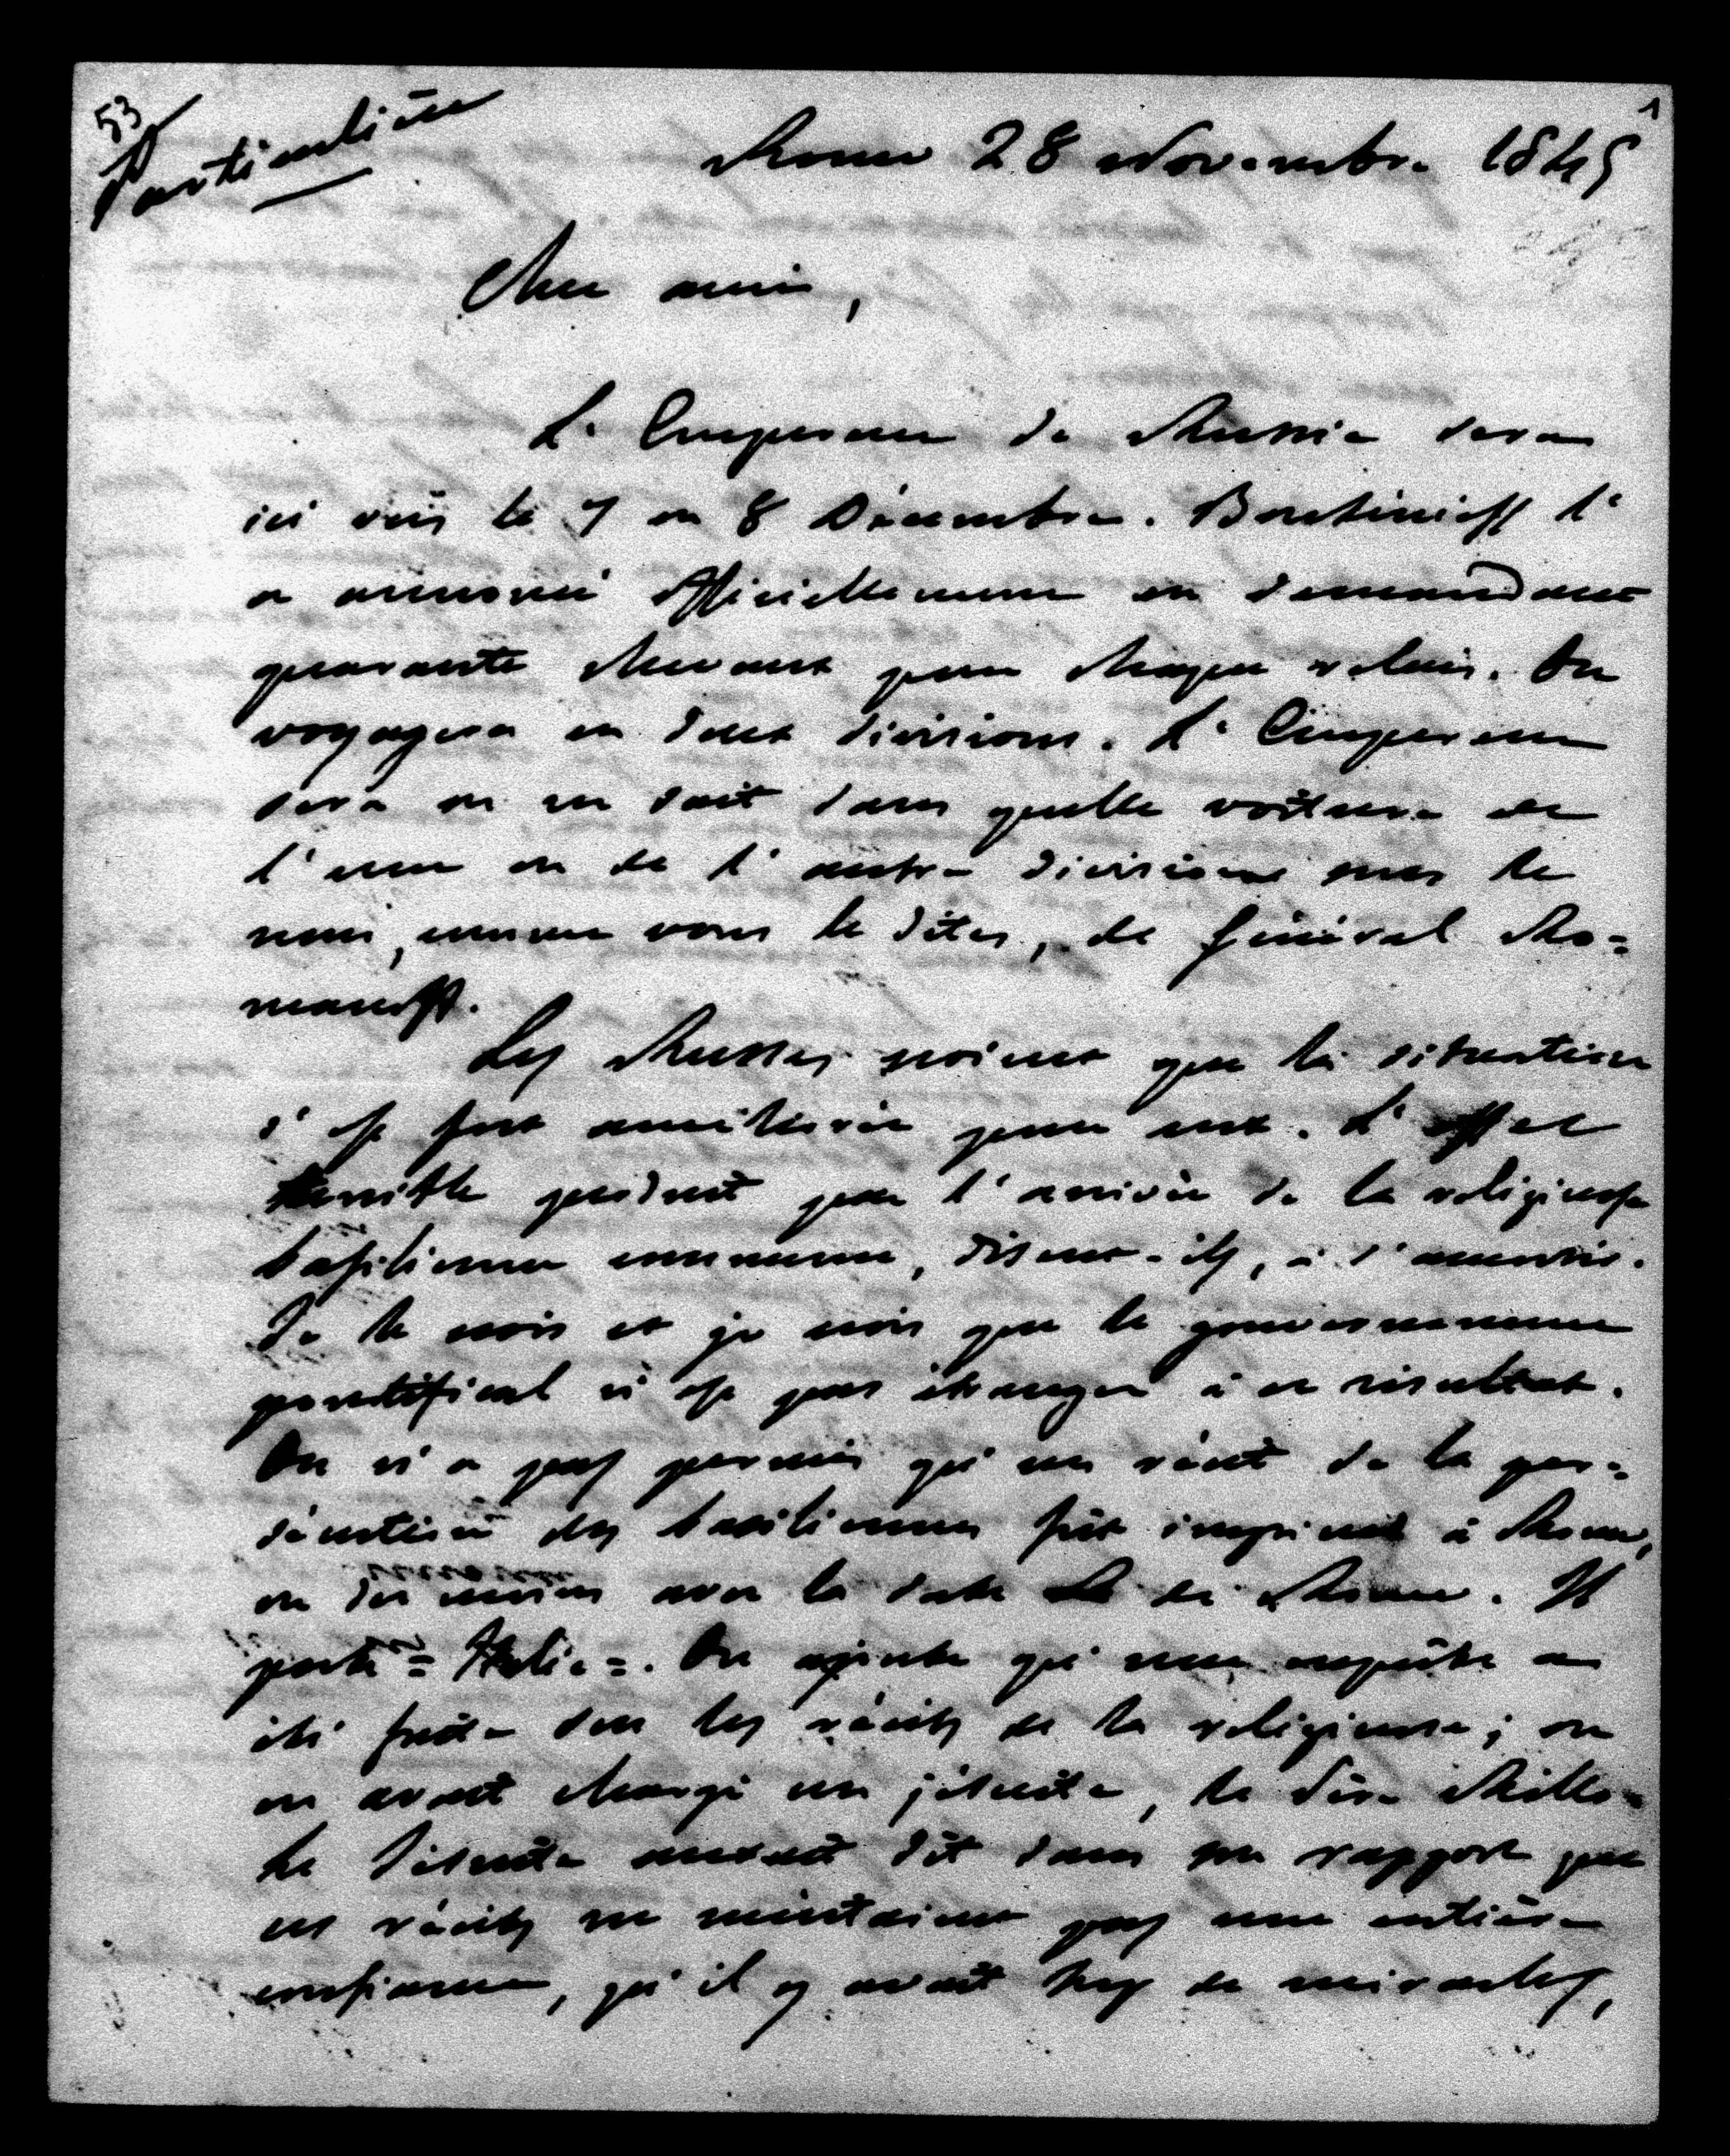 53
1
Particulière
Rome 28 Novembre 1845
Cher ami,
L'Empereur de Russie sera
ici vers le 7 ou 8 Décembre. Boutenieff l'
a annoncé officiellement en demandant
quarante chevaux pour chaque relais. On
voyagera en deux divisions. L'Empereur
sera on ne sait dans quelle voiture de
l'une ou de l'autre division sous le
nom, comme vous le dites, de Général Ro=
manoff.
Les Russes croient que la situation
s'est fort améliorée pour eux. L'effet
terrible produit par l'arrivée de la religieuse
basilienne commence, disent-ils, à s'amortir.
Je le crois et je crois que le gouvernement
pontifical n'est pas étranger à ce résultat.
On n'a pas permis qu'un récit de la per=
sécution des basiliennes fût imprimé à Rome,
ou du moins avec la date de Rome. Il
porte = Italie =. On ajoute qu'une enquête a
été faite sur les récits de la religieuse ; on
en avait chargé un jésuite, le Père Rillo.
Le Jésuite aurait dit dans son rapport que
ces récits ne méritaient pas une entière
confiance, qu'il y avait trop de miracles,